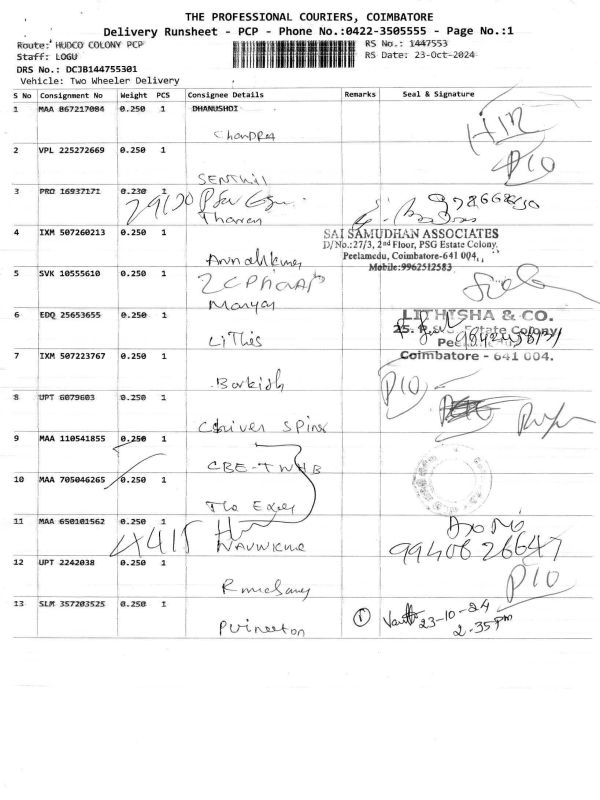 THE PROFESSIONAL COURIERS, COIMBATORE
Delivery Runsheet - PCP - Phone No.:0422-3505555 - Page No.:1
Route: HUDCO COLONY PCP
RS No.: 1447553
Staff: LOGU
RS Date: 23-Oct-2024
DRS No.: DCJB144755301
Vehicle: Two Wheeler Delivery
S No Consignment No Weight PCS Consignee Details Remarks Seal & Signature
1 MAA 867217084 0.250 1 DHANUSHOI
ChANDRA
2 VPL 225272669 0.250 1
SENThil
P10
3 PRO 16937171 0.230 1
Tharan
4 IXM 507260213 0.250 1
SAI SAMUDHAN ASSOCIATES
D/No.:27/3, 2nd Floor, PSG Estate Colony,
Peelamedu, Coimbatore-641 004.
Mobile:9962512583
5 SVK 10555610 0.250 1
6 EDQ 25653655 0.250 1
LITHISHA & CO.
Estate Colony
LiThis
Coimbatore - 641 004.
7 IXM 507223767 0.250 1
P10
8 UPT 6079603 0.250 1
9 MAA 110541855 0.250 1
10 MAA 705046265 0.250 1
11 MAA 650101562 0.250 1
4415
9940826647
12 UPT 2242038 0.250 1
P10
13 SLM 357203525 0.250 1
1 23-10-24
2.35pm